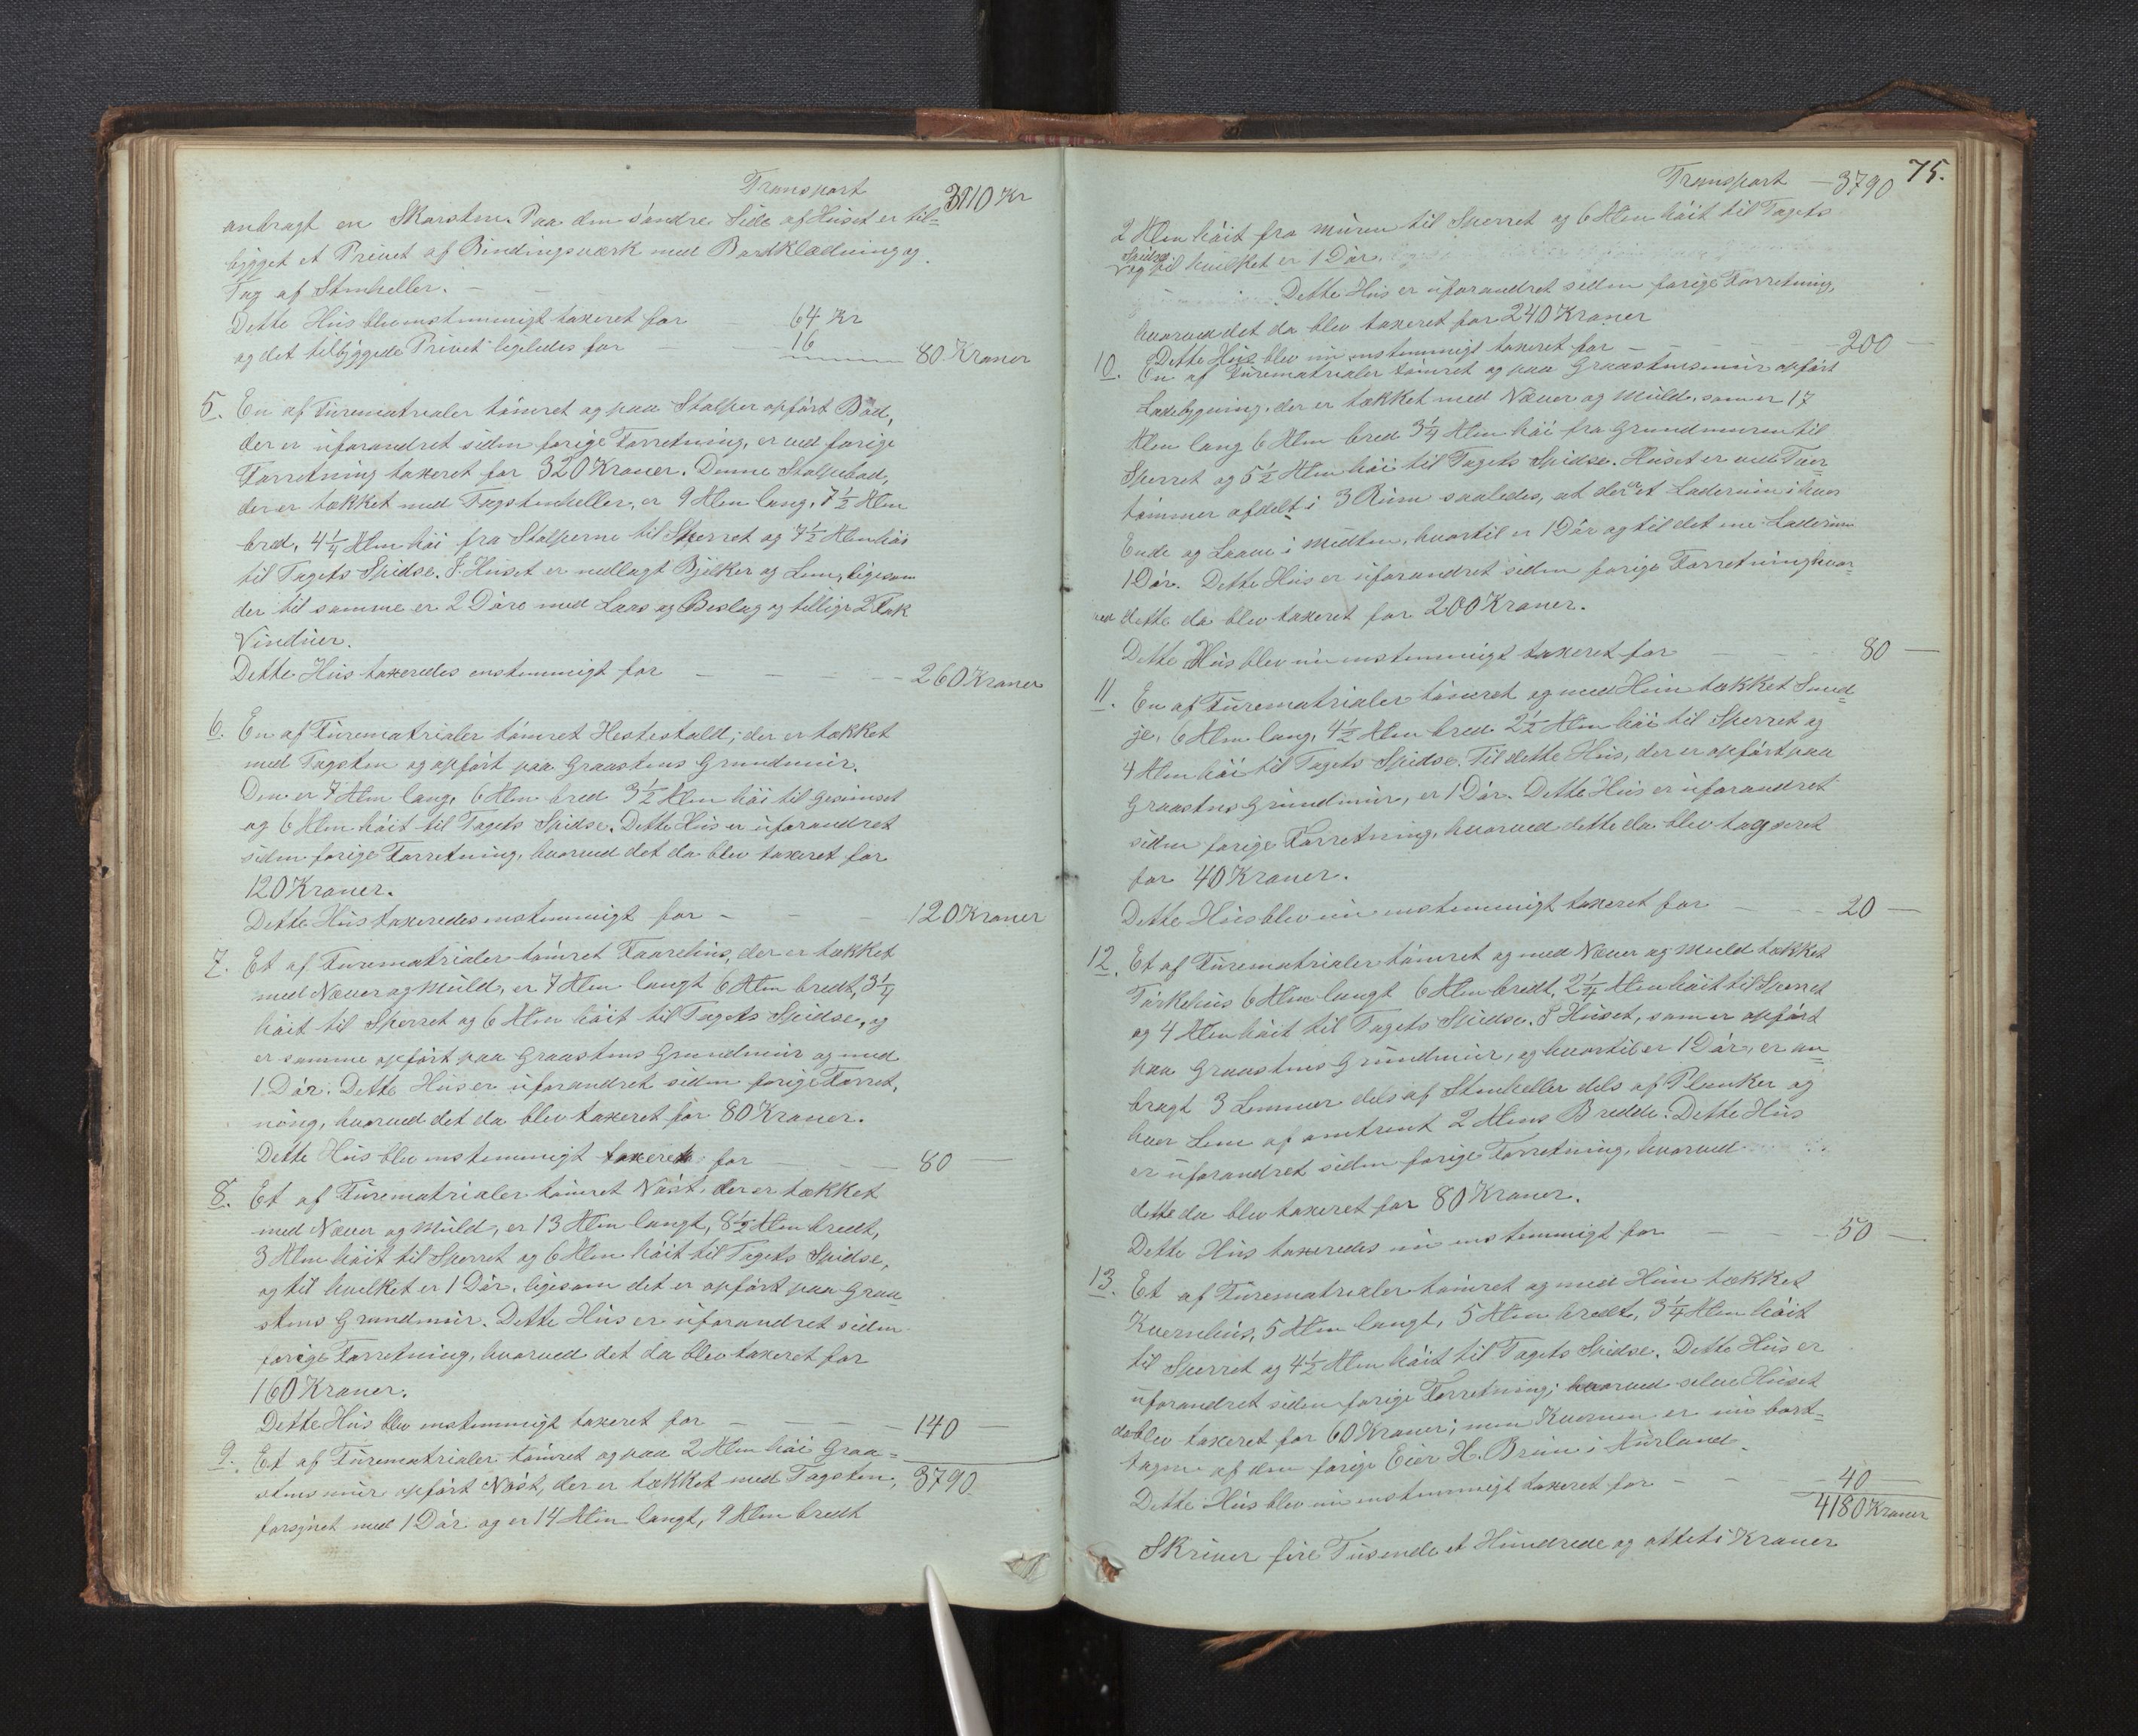 Transport 3110 Kr
anbragt en Skorsten. Paa den søndre Side af Huset er til-
bygget et Privet af Bindingsværk med Bordklædning og
Tag af Stenheller. —
Dette Hus blev enstemmigt taxeret for 64 Kr
og det tilbyggede Privet ligeledes for — 16 80 Kroner
5. En af Furematrialer tømret og paa Stolper opført Bod,
der er uforandret siden forige Forretning, er ved forige
Forretning taxeret for 320 Kroner. Denne Stolpebod,
der er tækket med Tagstenheller, er 9 Alen lang, 7 1/2 Alen
bred, 4 1/4 Alen høi fra Stolperne til Sperret og 7 1/2 Alen høi
til Tagets Spidse. I Huset er nedlagt Bjelker og Lem, ligesom
der til samme er 2 Døre med Laas og Beslag og tillige 2 Fak
Vinduer.
Dette Hus taxeredes enstemmigt for — 260 Kroner
6. En af Furematrialer tømret Hestestald; der er tækket
med Tagsten og opført paa Graastens Grundmur.
Den er 7 Alen lang, 6 Alen bred 3 1/2 Alen høi til Gesimset
og 6 Alen høit til Tagets Spidse. Dette Hus er uforandret
siden forige Forretning, hvorved det da blev taxeret for
120 Kroner.
Dette Hus taxeredes enstemmigt for — 120 Kroner
7. Et af Furematrialer tømret Faarehus, der er tækket
med Næver og Muld, er 7 Alen langt 6 Alen bredt, 3 1/4
høit til Sperret og 6 Alen høit til Tagets Spidse, og
er samme opført paa Graastens Grundmur og med
1 Dør. Dette Hus er uforandret siden forige Forret-
ning, hvorved det da blev taxeret for 80 Kroner.
Dette Hus blev enstemmigt taxeret for — 80 —
8. Et af Furematrialer tømret Nøst, der er tækket
med Næver og Muld, er 13 Alen langt, 8 1/2 Alen bredt,
3 Alen høit til Sperret og 6 Alen høit til Tagets Spidse,
og til hvilket er 1 Dør, ligesom det er opført paa Graa-
stens Grundmur. Dette Hus er uforandret siden
forige Forretning, hvorved det da blev taxeret for
160 Kroner.
Dette Hus blev enstemmigt taxeret for — 140 —
9. Et af Furematrialer tømret og paa 2 Alen høi Graa-
stens mur opført Nøst, der er tækket med Tagsten, 3790
forsynet med 1 Dør og er 14 Alen langt, 9 Alen bredt
75.
Transport — 3790
2 Alen høit fra Muren til Sperret og 6 Alen høit til Tagets
Spidse
og til hvilket er 1 Dør.
Dette Hus er uforandret siden forige Forretning,
hvorved det da blev taxeret for 240 Kroner
Dette Hus blev nu enstemmigt taxeret for — 200 —
10. En af Furematrialer tømret og paa Graastensmur opført
Ladebygning, der er tækket med Næver og Muld, som er 17
Alen lang 6 Alen bred 3 1/4 Alen høi fra Grundmuren til
Sperret og 5 1/2 Alen høi til Tagets Spidse. Huset er ved Tver
tømmer afdelt i 3 Rum saaledes, at der er et Laderum i hver
Ende og Laave i Midten, hvortil er 1 Dør og til det ene Laderum
1 Dør. Dette Hus er uforandret siden forige Forretning hvor-
ved dette da blev taxeret for 200 Kroner.
Dette Hus blev nu enstemmigt taxeret for — 80 —
11. En af Furematrialer tømret og med Hun tækket Smed-
je, 6 Alen lang, 4 1/2 Alen bred 2 1/2 Alen høi til Sperret og
4 Alen høi til Tagets Spidse. Til dette Hus, der er opført paa
Graastens Grundmur, er 1 Dør. Dette Hus er uforandret
siden forige Forretning, hvorved dette da blev tagseret
for 40 Kroner.
Dette Hus blev nu enstemmigt taxeret for — 20 —
12. Et af Furematrialer tømret og med Næver og Muld tækket
Tørkehus 6 Alen langt 6 Alen bredt, 2 1/4 Alen høit til Sperret
og 4 Alen høit til Tagets Spidse. I Huset, som er opført
paa Graastens Grundmur, og hvortil er 1 Dør, er an-
bragt 3 Lemmer dels af Stenheller dels af Planker og
hver Lem af omtrent 2 Alens Bredde. Dette Hus
er uforandret siden forige Forretning, hvorved
dette da blev taxeret for 80 Kroner.
Dette Hus taxeredes nu enstemmigt for — 50 —
13. Et af Furematrialer tømret og med Hun tækket
Kvernhus, 5 Alen langt, 5 Alen bredt, 3 1/4 Alen høit
til Sperret og 4 1/2 Alen høit til Tagets Spidse. Dette Hus er
uforandret siden forige Forretning; hvorved selve Huset
da blev taxeret for 60 Kroner; men Kvernen er nu bort-
tagen af den forige Eier H. Brun i Aurland.
Dette Hus blev nu enstemmigt taxeret for — 40 —
4180 Kroner
Skriver fire Tusende et Hundrede og otteti Kroner